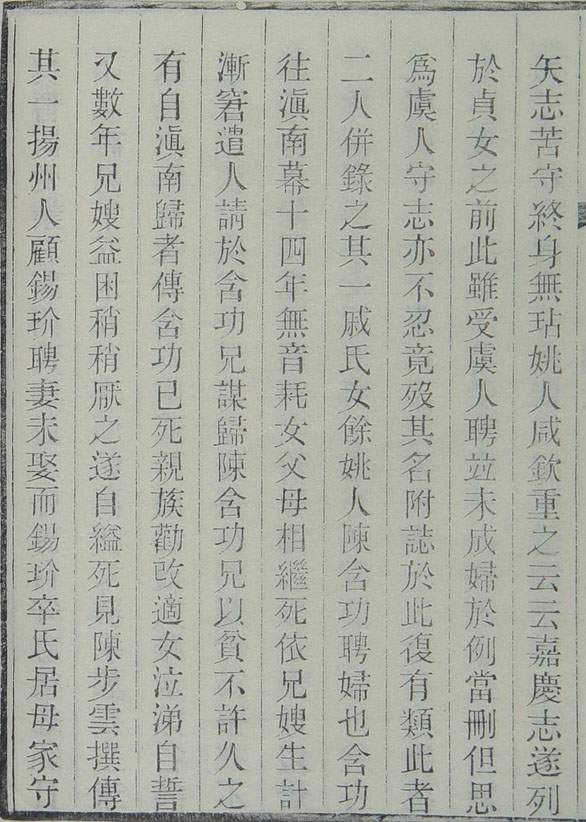 矢志苦守終身無玷姚人咸欽重之云云嘉慶志遂列
於貞女之前此雖受虞人聘竝未成婦於例當刪但思
爲虞人守志亦不忍竟歿其名附誌於此復有類此者
二人併錄之其一戚氏女餘姚人陳含功聘婦也含功
往滇南幕十四年無音耗女父母相繼死依兄嫂生計
漸窘遣人請於含功兄謀歸陳含功兄以貧不許久之
有自滇南歸者傳含功已死親族勸改適女泣涕自誓
又數年兄嫂益困稍稍厭之遂自縊死見陳步雲撰傳
其一揚州人顧錫玠聘妻未娶而錫玠卒氏居母家守